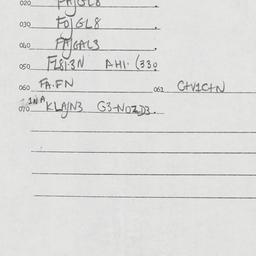 020 PAJGL8
030 FOJGL8
040 FAJGAL3
050 FL8I3N AHI. (330
060 FA.FN 061 C+V1C+N
070 1NA KLAJN3 G3-NOZD3.